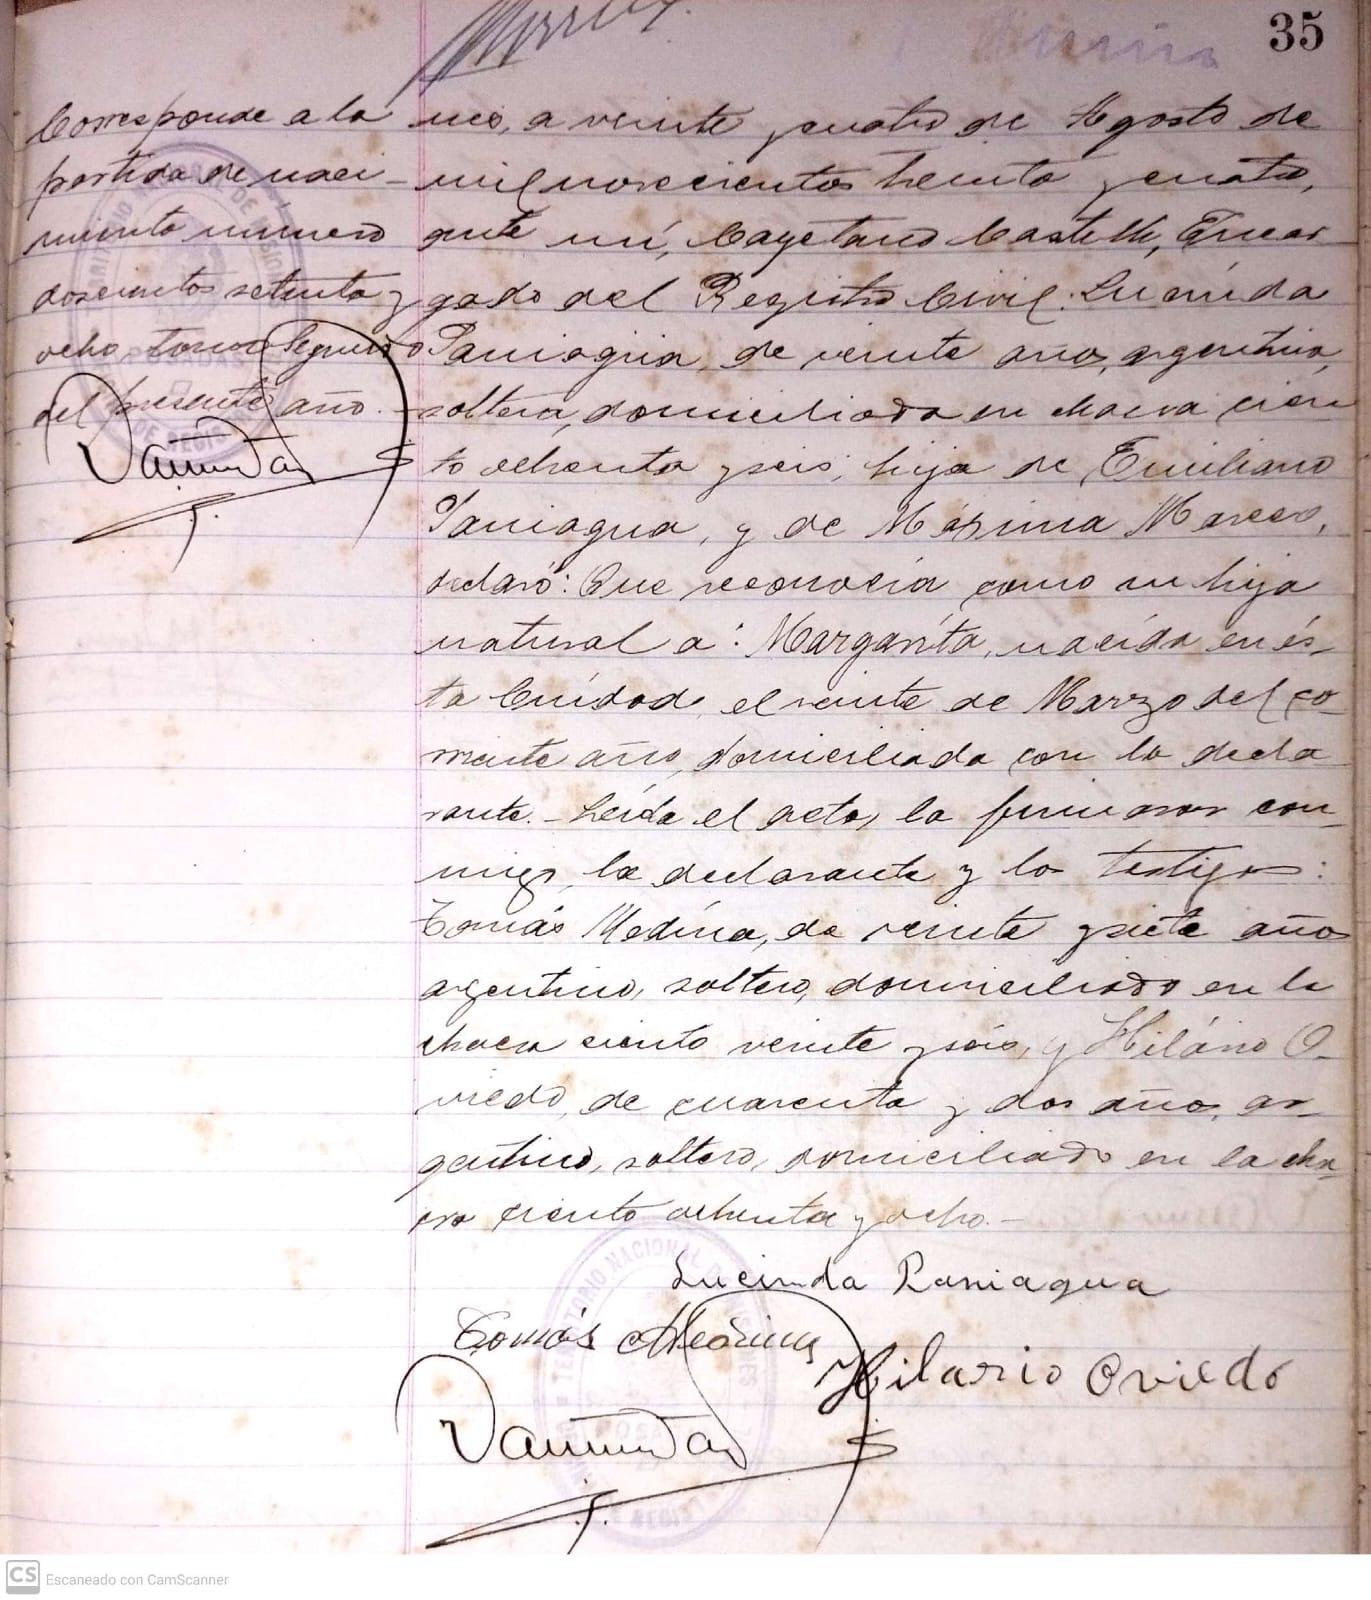 35
Corresponde a la
partida de naci-
miento número
doscientos setenta y
ocho, tomo Segundo
del presente año.
nes, a veinte y cuatro de Agosto de
mil novecientos treinta y cuatro,
ante mí, Cayetano Castelli, Encar
gado del Registro Civil: Lucinda
Paniagua, de veinte años, argentina,
soltera, domiciliada en chacra cien
to ochenta y seis, hija de Emiliano
Paniagua, y de Máxima
declaró: Que reconocía como su hija
natural a: Margarita, nacida en és-
ta Ciudad, el veinte de Marzo del co-
rriente año, domiciliada con la decla
rante.- Leída el acta, la firmaron con-
migo, la declarante y los testigos:
Tomás Medina, de veinte y siete años
argentino, soltero, domiciliado en la
chacra ciento veinte y seis, y Hilário O-
viedo, de cuarenta y dos años, ar-
gentino, soltero, domiciliado en la cha-
cra ciento ochenta y ocho.-
Lucinda Paniagua
Tomás Medina
Hilario Oviedo
TERRITORIO NACIONAL DE MISIONES
POSADAS
CS Escaneado con CamScanner